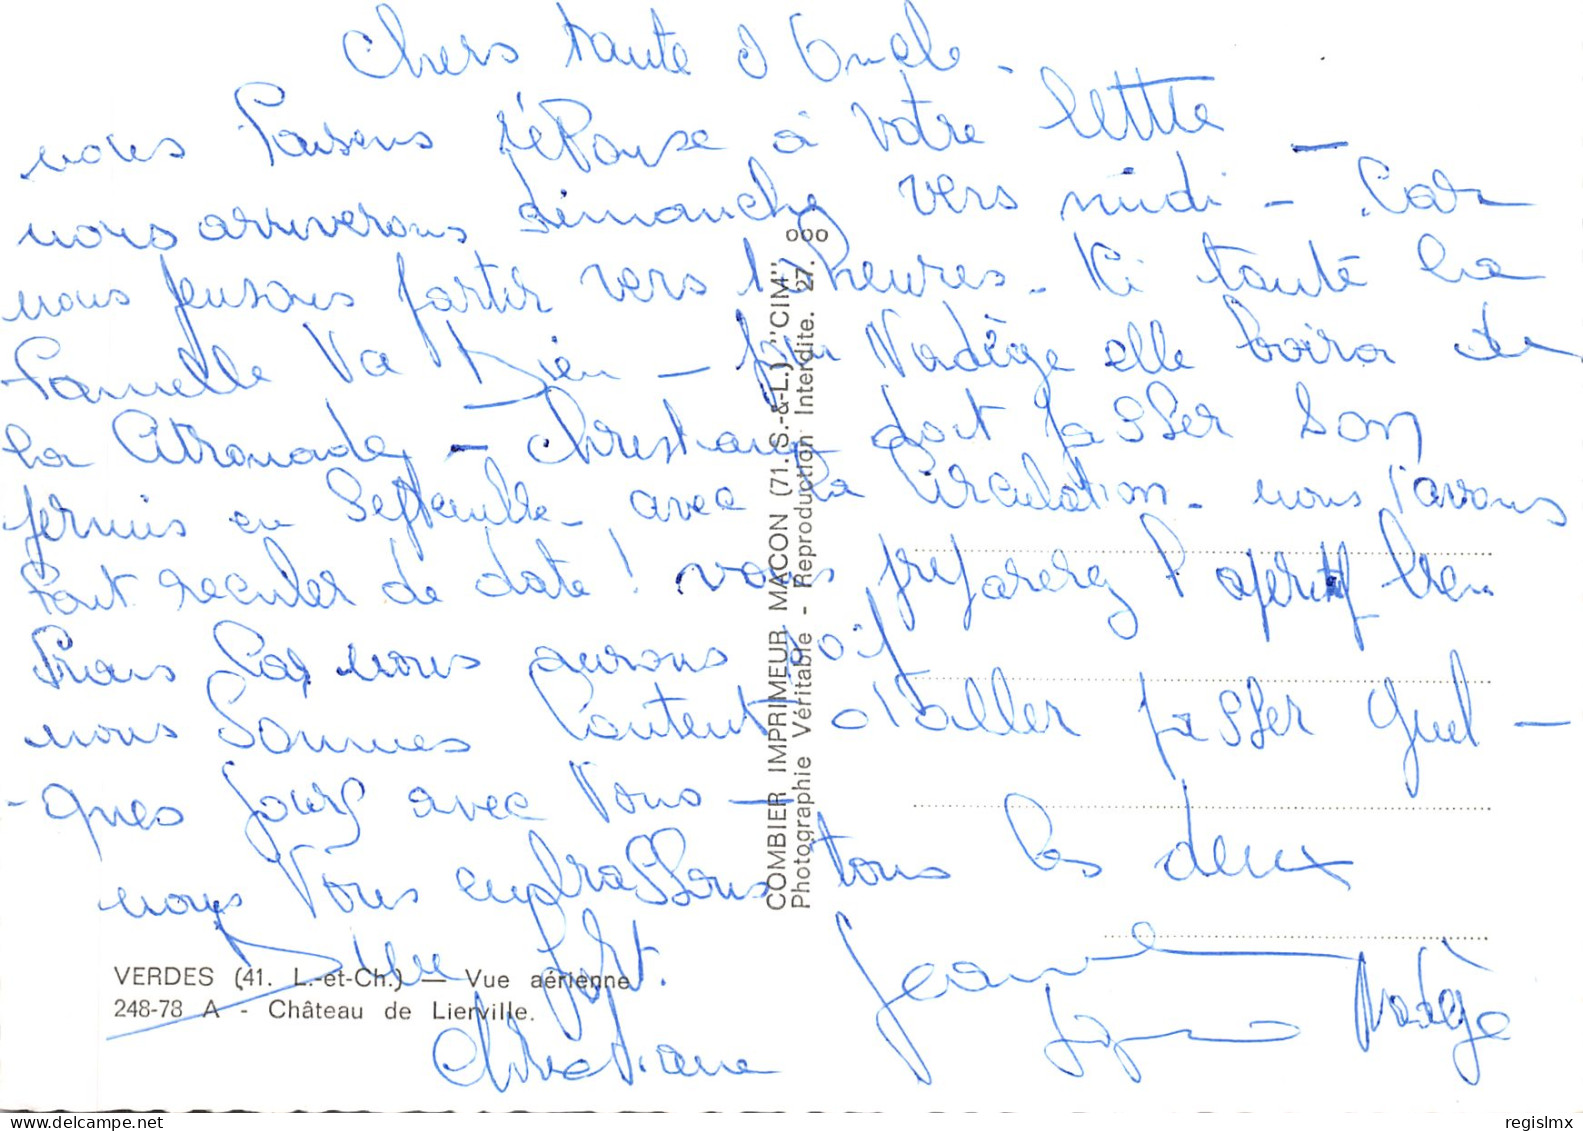 Chers tante & Oncle -
nous faisons réponse à votre lettre -
nous arriverons dimanche vers midi - Car
nous pensons partir vers 10 heures. Ici toute la
famille va bien - pour Nadège elle boira de
la citronade, - Christiane doit passer son
permis en septembre - avec la circulation - nous l'avons
fait reculer de date ! vous préparerez l'aperitif bien
frais car nous aurons soif
nous sommes content d'aller passer quel -
- ques jours avec vous -
nous vous embrassons tous les deux
bien fort.
Christiane
Jeannot
Nadège
VERDES (41. L.-et-Ch.) — Vue aérienne
248-78 A - Château de Lierville.
COMBIER IMPRIMEUR MACON (71.S.-&-L.) "CIM"
Photographie Véritable - Reproduction Interdite. 27. 000
regislmx